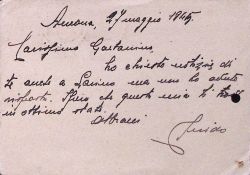 Ancona, 27 maggio 1945
Carissimo Gaetanino,
ho chiesto notizie di
te anche a Lanino ma non ho avuto
risposta. Spero che questa mia ti trovi
in ottimo stato.
Abbracci
Guido